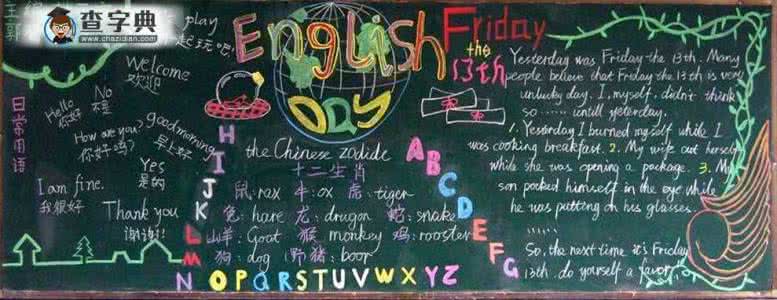 查字典
www.chazidian.com
play
起玩吧!
Welcome
欢迎
日常用语
Hello
你好
No
不是
How are you?
你好吗?
good morning
早上好
Yes
是的
I am fine.
我很好
Thank you
谢谢!
English
Day
the Chinese zodide
十二生肖
鼠:rax 牛:ox 虎:tiger
兔:hare 龙:drugon 蛇:snake
山羊:Goat 猴:monkey 鸡:rooster
狗:dog 野猪:boor
A B C D E F G
H I J K L M N O P Q R S T U V W X Y Z
Friday
the
13th
Yesterday was Friday the 13th. Many
people believe that Friday the 13th is very
unlucky day. I, myself, didn't think
so ...... untill yesterday.
1. Yesterday I burned myself while I
was cooking breakfast. 2. My wife cut herself
while she was opening a package. 3. My
son poked himself in the eye while
he was putting on his glasses.
......
So, the next time it's Friday
13th. do yourself a favor.